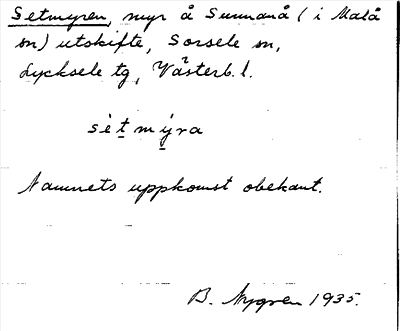 Setmyren, myr å Sunnanå (i Malå
sn) utskifte, Sorsele sn,
Lycksele tg, Västerb. l.
sètmýra
Namnets uppkomst obekant.
B. Nygren 1935.